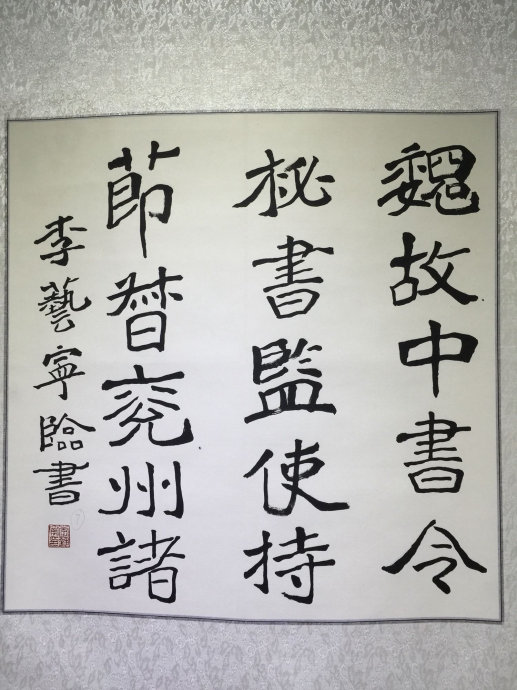 魏故中書令
秘書監使持
節督兖州諸
李藝寧臨書